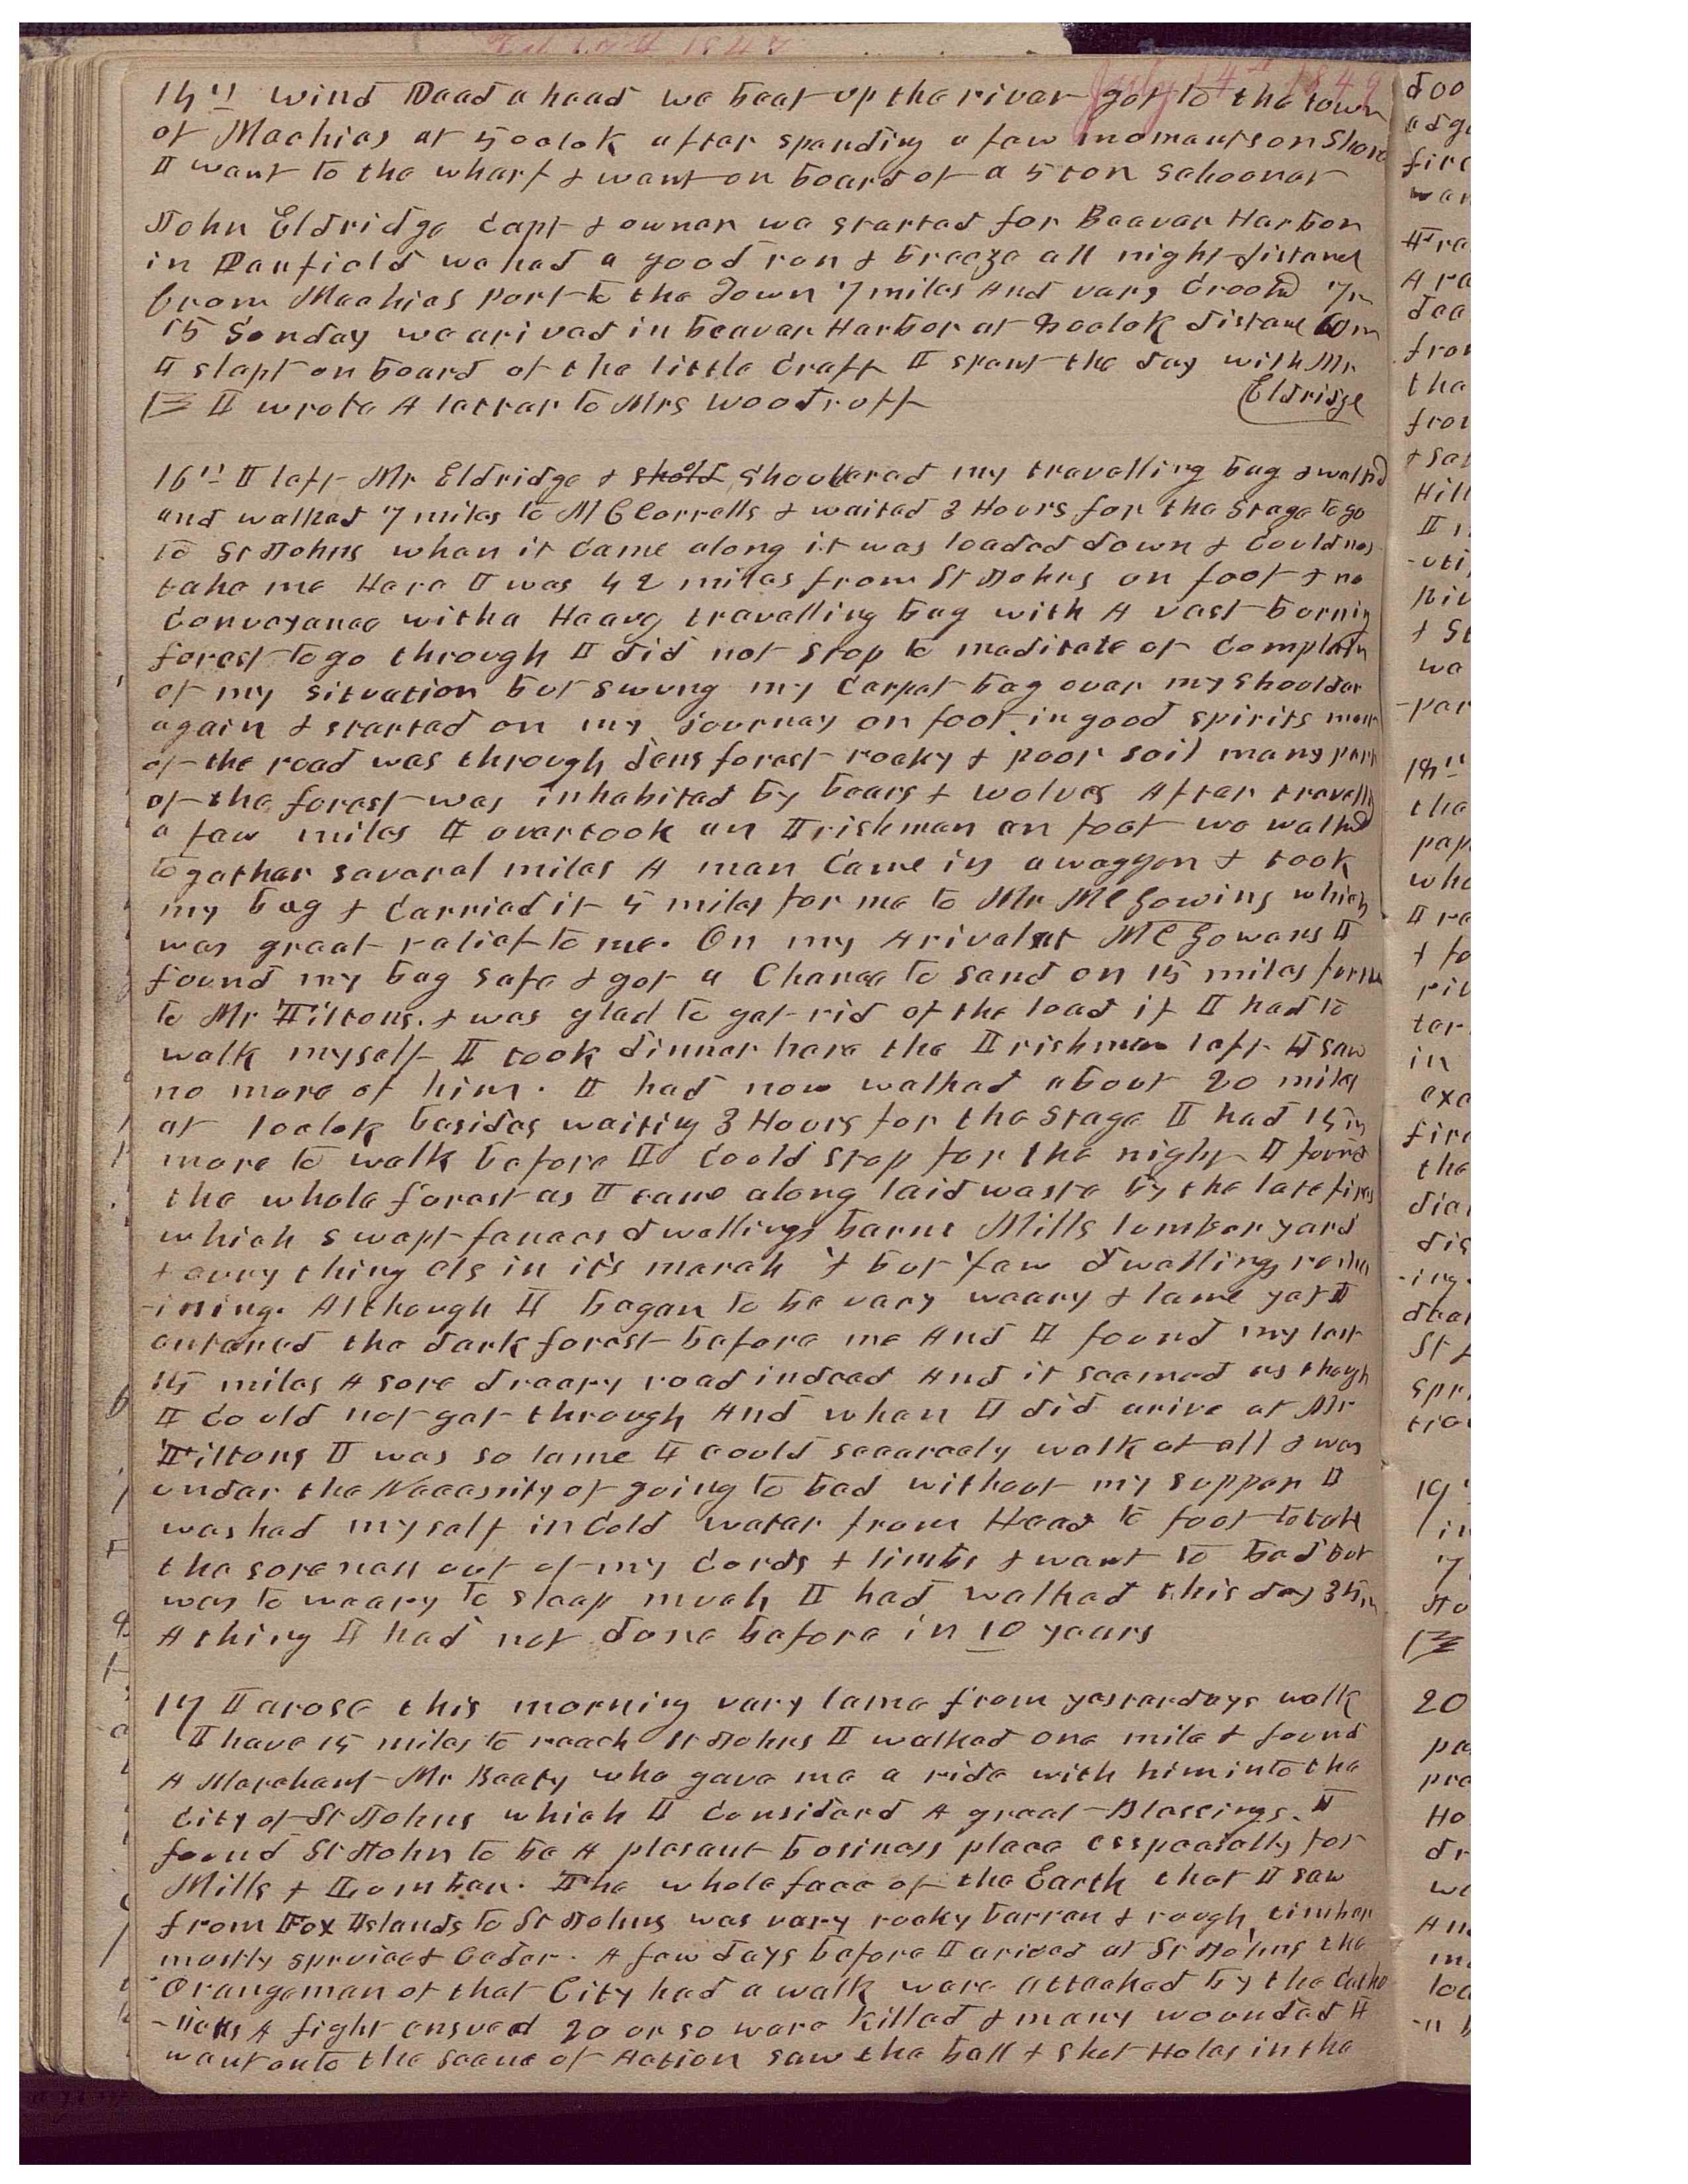 July 14th 1849
14th wind Dead ahead we beat up the river got to the town
of Machias at 5 oclok after spending a few momants on Shore
I went to the wharf & went on board of a 5 ton Schooner
John Eldridge Capt & owner we started for Beaver Harbor
in Panfield we had a good run & breeze all night distance
from Machias port to the Town 7 miles And very Crooked 7m
15 Sunday we arived in beaver Harbor at oclok distance 60m
I slept on board of the little Craft I spent the day with Mr
I wrote A letter to Mrs Woodruff Eldridge
16th I left Mr Eldridge & shold shouldered my travelling bag & walked
and walked 7 miles to McCorrells & waited 3 Hours for the Stage to go
to St Johns when it Came along it was loaded down & Could not
take me Here I was 42 miles from St Johns on foot & no
Conveyance with a Heavy travelling bag with A vast burning
forest to go through I did not stop to meditate or Complain
of my situation but swung my Carpet bag over my shoulder
again & started on my journey on foot in good spirits most
of the road was through dens forest rocky & poor soil many part
of the forest was inhabited by bears & wolves After travelling
a few miles I overtook an Irishman on foot we walked
together several miles A man Came in a waggon & took
my bag & Carried it 5 miles for me to Mr McGowins which
was great relief to me. On my Arival at McGowans I
found my bag safe & got a Chance to send on 15 miles further
to Mr Tiltons. & was glad to get rid of the load if I had to
walk myself I took dinner here the Irishman left I saw
no more of him. I had now walked about 20 miles
at 1 oclok besides waiting 3 Hours for the Stage I had 15 m
more to walk before I Could stop for the night I found
the whole forest as I came along laid waste by the late fires
which swept fences dwellings barns Mills lumber yard
& evry thing els in it's march & but few dwellings rema
-ining. Although I began to be very weary & lame yet I
entered the dark forest before me And I found my last
15 miles A sore dreary road indeed And it seemed as though
I Could not get through And when I did arive at Mr
Tiltons I was so lame I could scearcely walk at all & was
under the Necessity of going to bed without my supper I
washed myself in Cold water from Head to foot to take
the soreness out of my Cords & limbs & went to bed but
was to weary to sleep much I had walked this day 35m
A thing I had not done before in 10 years
17 I arose this morning very lame from yesterdays walk
I have 15 miles to reach St Johns I walked one mile & found
A Merchant Mr Beaty who gave me a ride with him into the
City of St Johns which I Considerd A great Blessings. I
found St John to be A plesant business place esspecially for
Mills & Lumber. The whole face of the Earth that I saw
from Fox Islands to St Johns was very rocky barren & rough timber
mostly spruice & Ceder. A few days before I arived at St Johns the
Orangeman of that City had a walk were attacked by the Catho
-licks A fight ensued 20 or so were killed & many wounded I
went onto the scene of Action saw the ball & shot Holes in the